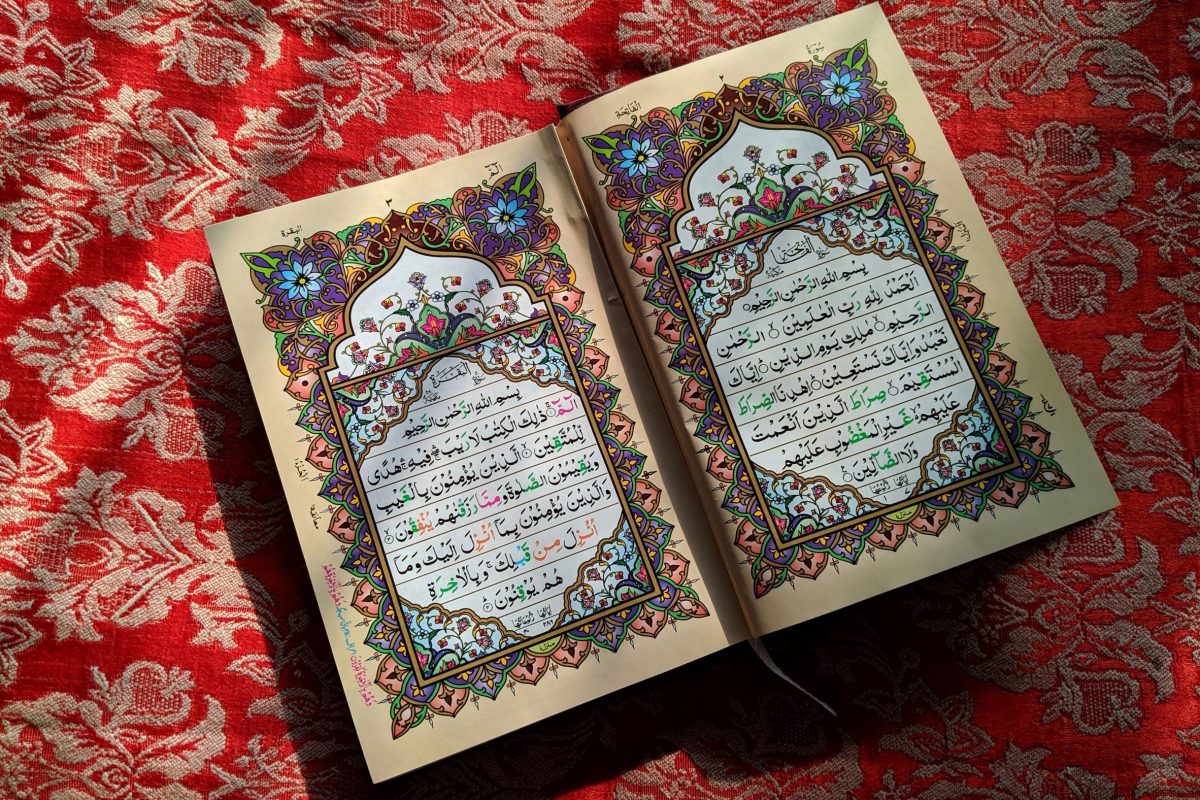 سُوْرَة
٢
الفَاتِحَة
بِسْمِ اللهِ الرَّحْمٰنِ الرَّحِيْمِ
اَلْحَمْدُ لِلّٰهِ رَبِّ الْعٰلَمِيْنَ ۙ الرَّحْمٰنِ
الرَّحِيْمِ ۙ مٰلِكِ يَوْمِ الدِّيْنِ ؕ اِيَّاكَ
نَعْبُدُ وَاِيَّاكَ نَسْتَعِيْنُ ؕ اِهْدِنَا الصِّرَاطَ
الْمُسْتَقِيْمَ ۙ صِرَاطَ الَّذِيْنَ اَنْعَمْتَ
عَلَيْهِمْ ۙ غَيْرِ الْمَغْضُوْبِ عَلَيْهِمْ
وَلَا الضَّآلِّيْنَ
الٓمّٓ
٣
البقرة
بِسْمِ اللهِ الرَّحْمٰنِ الرَّحِيْمِ
الٓمّٓ ۚ ذٰلِكَ الْكِتٰبُ لَا رَيْبَ ۛ فِيْهِ ۛ هُدًى
لِّلْمُتَّقِيْنَ ۙ الَّذِيْنَ يُؤْمِنُوْنَ بِالْغَيْبِ
وَيُقِيْمُوْنَ الصَّلٰوةَ وَمِمَّا رَزَقْنٰهُمْ يُنْفِقُوْنَ ۙ
وَالَّذِيْنَ يُؤْمِنُوْنَ بِمَآ اُنْزِلَ اِلَيْكَ وَمَآ
اُنْزِلَ مِنْ قَبْلِكَ ۚ وَبِالْاٰخِرَةِ
هُمْ يُوْقِنُوْنَ